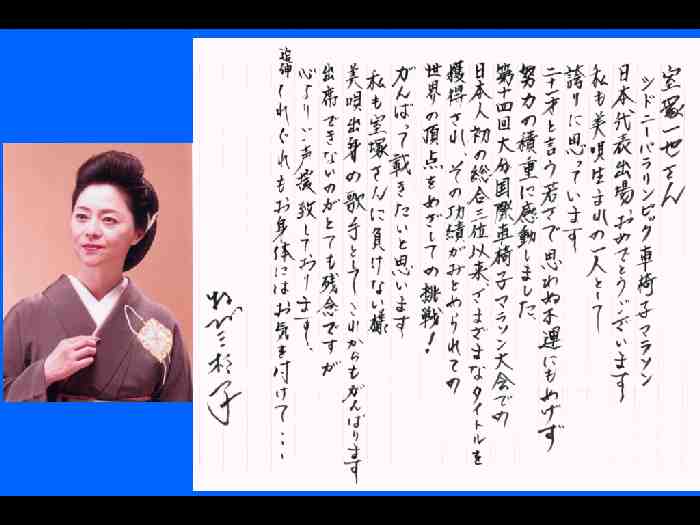 室塚一也さん
シドニーパラリンピック車椅子マラソン
日本代表出場おめでとうございます
私も美唄生まれの一人として
誇りに思っています
二十才と言う若さで思わぬ不運にもめげず
努力の積重に感動しました、
第十四回大分国際車椅子マラソン大会での
日本人初の総合三位以来、さまざまなタイトルを
獲得され、その功績がみとめられての
世界の頂点をめざしての挑戦!
がんばって戴きたいと思います
私も室塚さんに負けない様
美唄出身の歌手としてこれからもがんばります
出席できないのがとても残念ですが
心よりご声援致しております、
追伸 くれぐれもお身体にはお気を付けて・・・